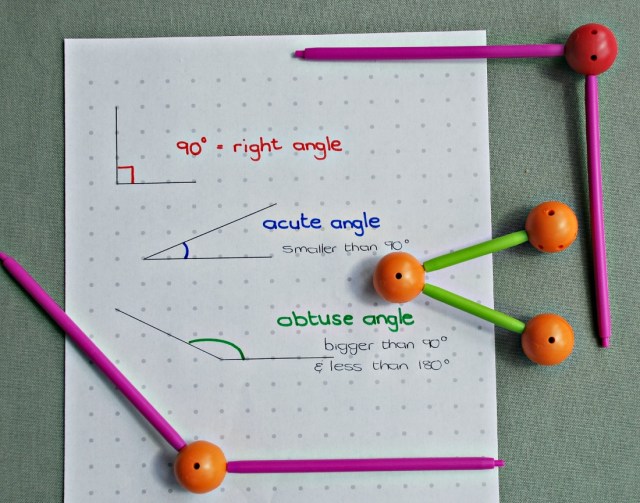 90° = right angle
acute angle
smaller than 90°
obtuse angle
bigger than 90°
& less than 180°